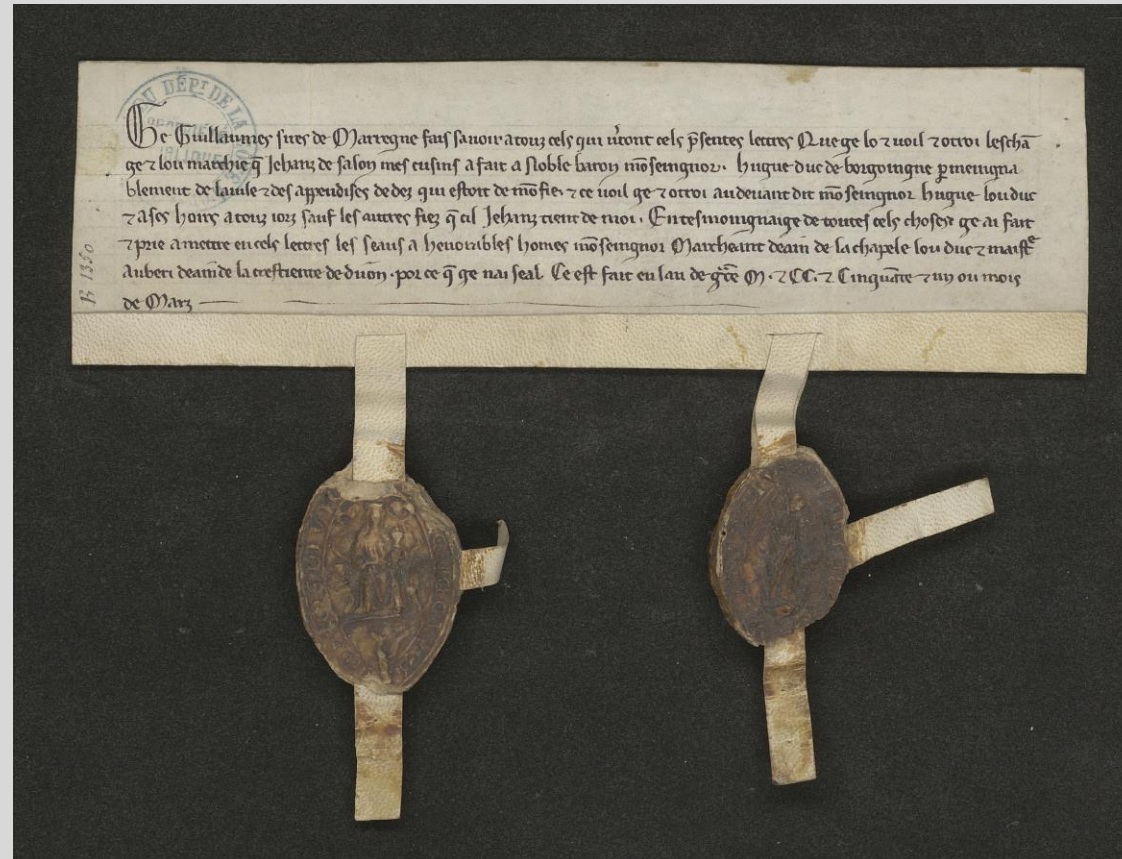 DU DÉPT DE LA
Ge Guillaumes sires de Marregne fais savoir a touz cels qui v̾ront cels p̄sentes lettres Que ge lo ⁊ voil ⁊ otroi leschā
ge ⁊ lou marchie q̄ Jehanz de falon mes cusins a fait a Noble baron mōseingnor. hugue duc de borgoingne ꝑmeingna
blement de la vile ⁊ des appendises de dez qui estoit de mō fie. ⁊ ce voil ge ⁊ otroi au devant dit mōseingnor hugue lou duc
⁊ a ses hoirs a touz iorz sauf les autres fiez q̄ cil Jehanz tient de moi. En tesmoingnaige de toutes cels choses ge ai fait
⁊ prie a mettre en cels lettres les seaus a henorables homes mōseingnor Marcheant deain de la chapele lou duc ⁊ maistᵉ
auberi deain de la crestiente de diion. por ce q̄ ge nai seal Ce est fait en lan de gᵃce M. ⁊ CC. ⁊ Cinquāte ⁊ un ou mois
de Marz
B 1350